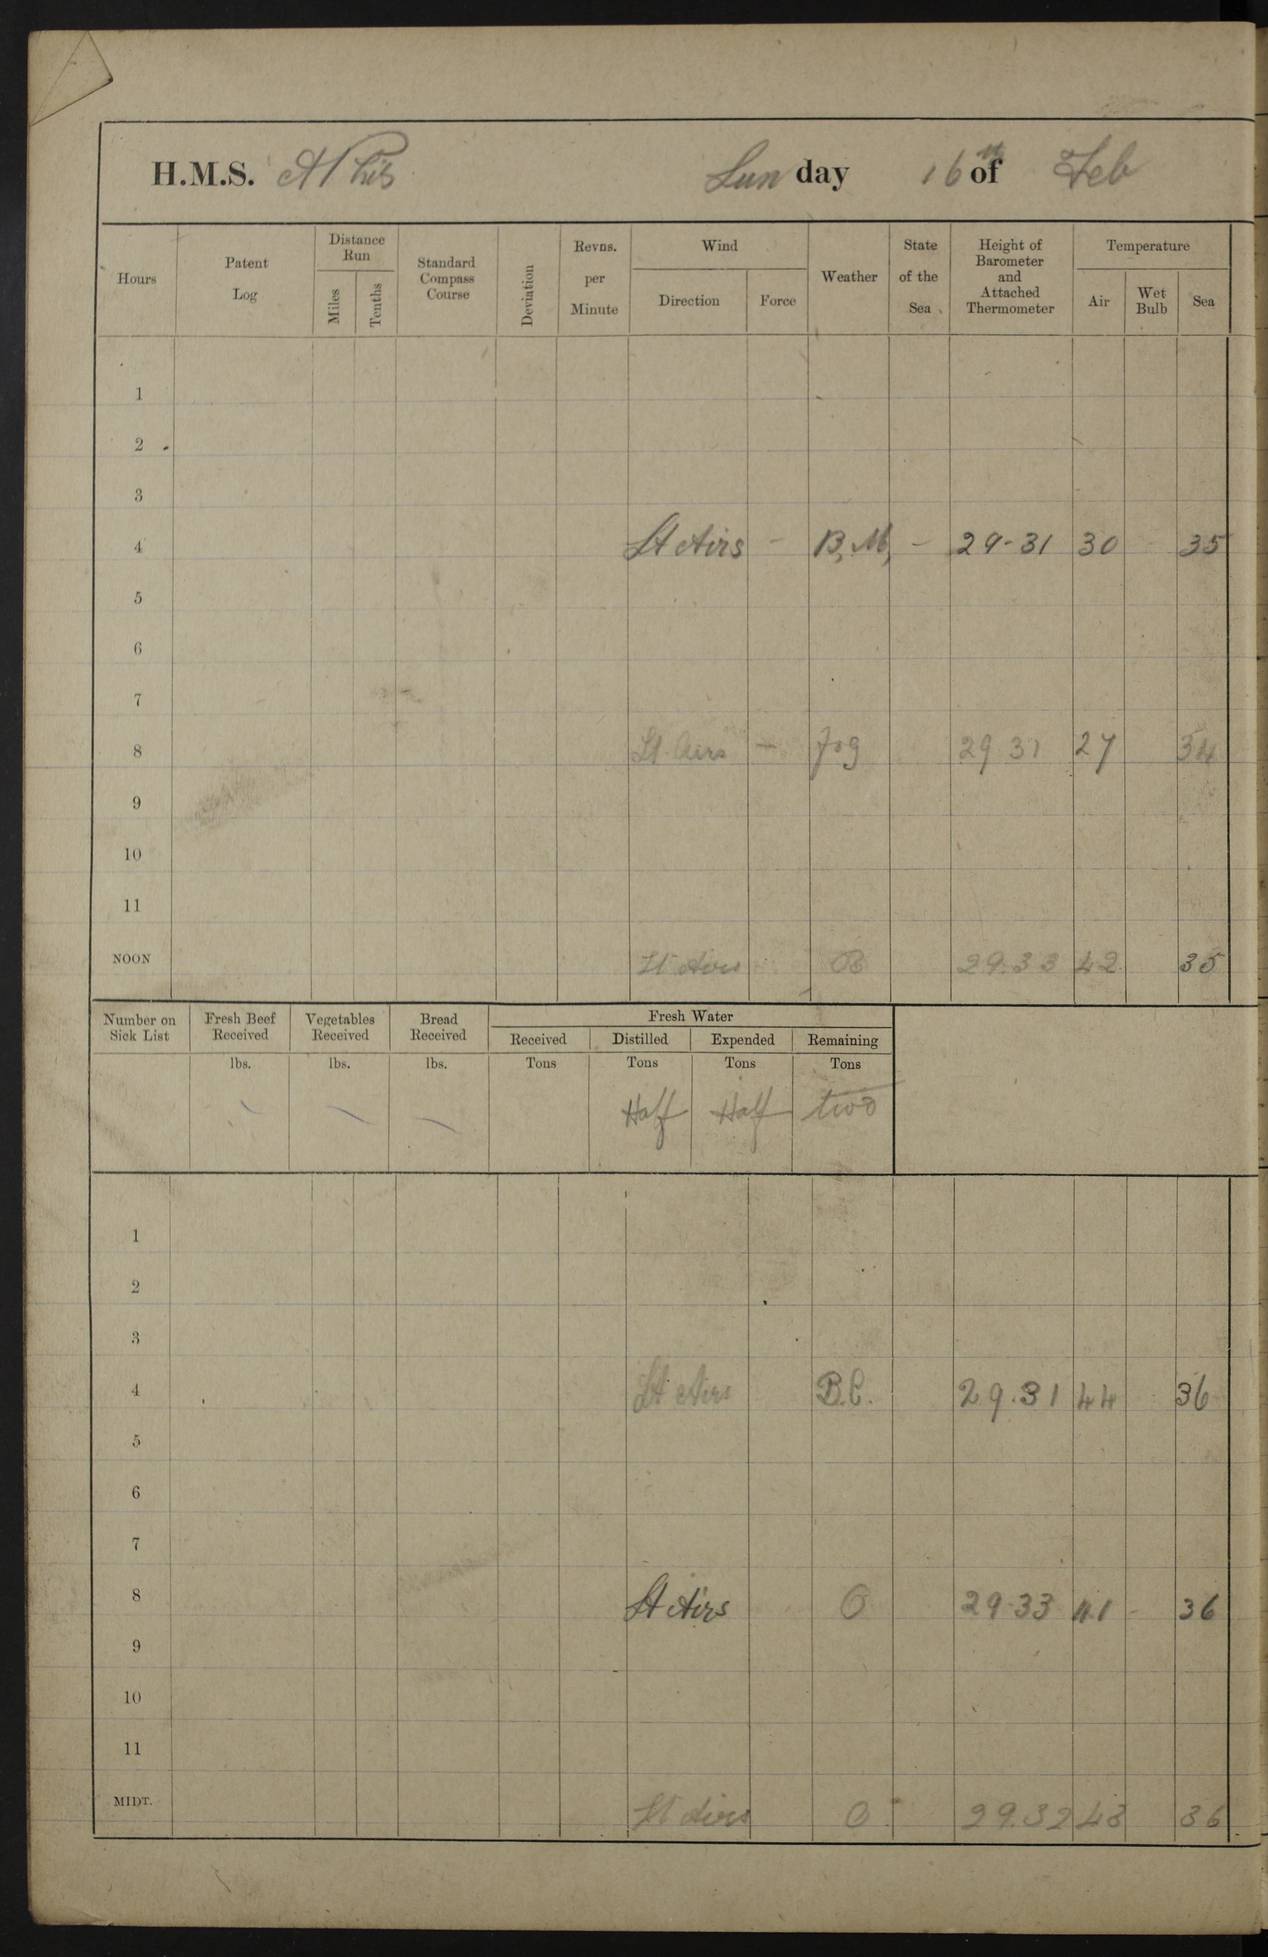 H.M.S. Sunday 16th of Feb
Hours Patent Log Distance Run Miles Tenths Standard Compass Course Deviation Revns. per Minute Wind Direction Force Weather State of the Sea Height of Barometer and Attached Thermometer Temperature Air Wet Bulb Sea
1
2
3
4 Lt Airs - B, M, - 29-31 30 35
5
6
7
8 Lt. Airs - Fog 29 31 27 34
9
10
11
NOON Lt Airs B 29.33 42 35
Number on Sick List Fresh Beef Received Vegetables Received Bread Received Fresh Water
Received Distilled Expended Remaining
lbs. lbs. lbs. Tons Tons Tons Tons
Half Half two
1
2
3
4 Lt Airs B.C. 29.31 44 36
5
6
7
8 Lt Airs O 29-33 41 36
9
10
11
MIDT. Lt Airs O 29.32 43 36